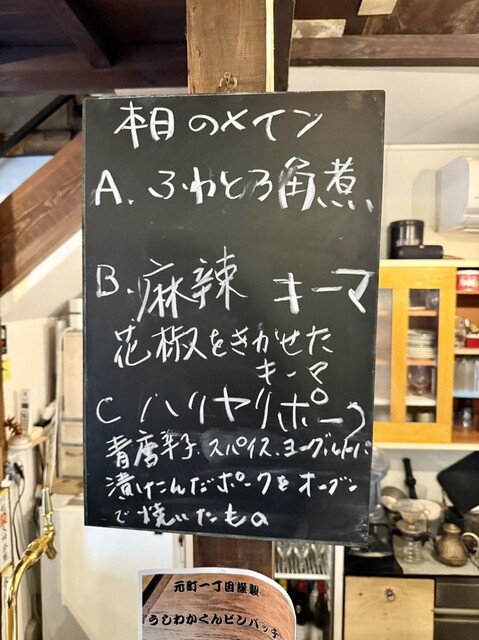 本日のメイン
A. ふわとろ角煮
B. 麻辣 キーマ
花椒をきかせた
キーマ
C ハリヤリポーク
青唐辛子、スパイス、ヨーグルトに
漬けこんだポークをオーブン
で焼いたもの
元町一丁目謹製
うしわかくんピンバッチ